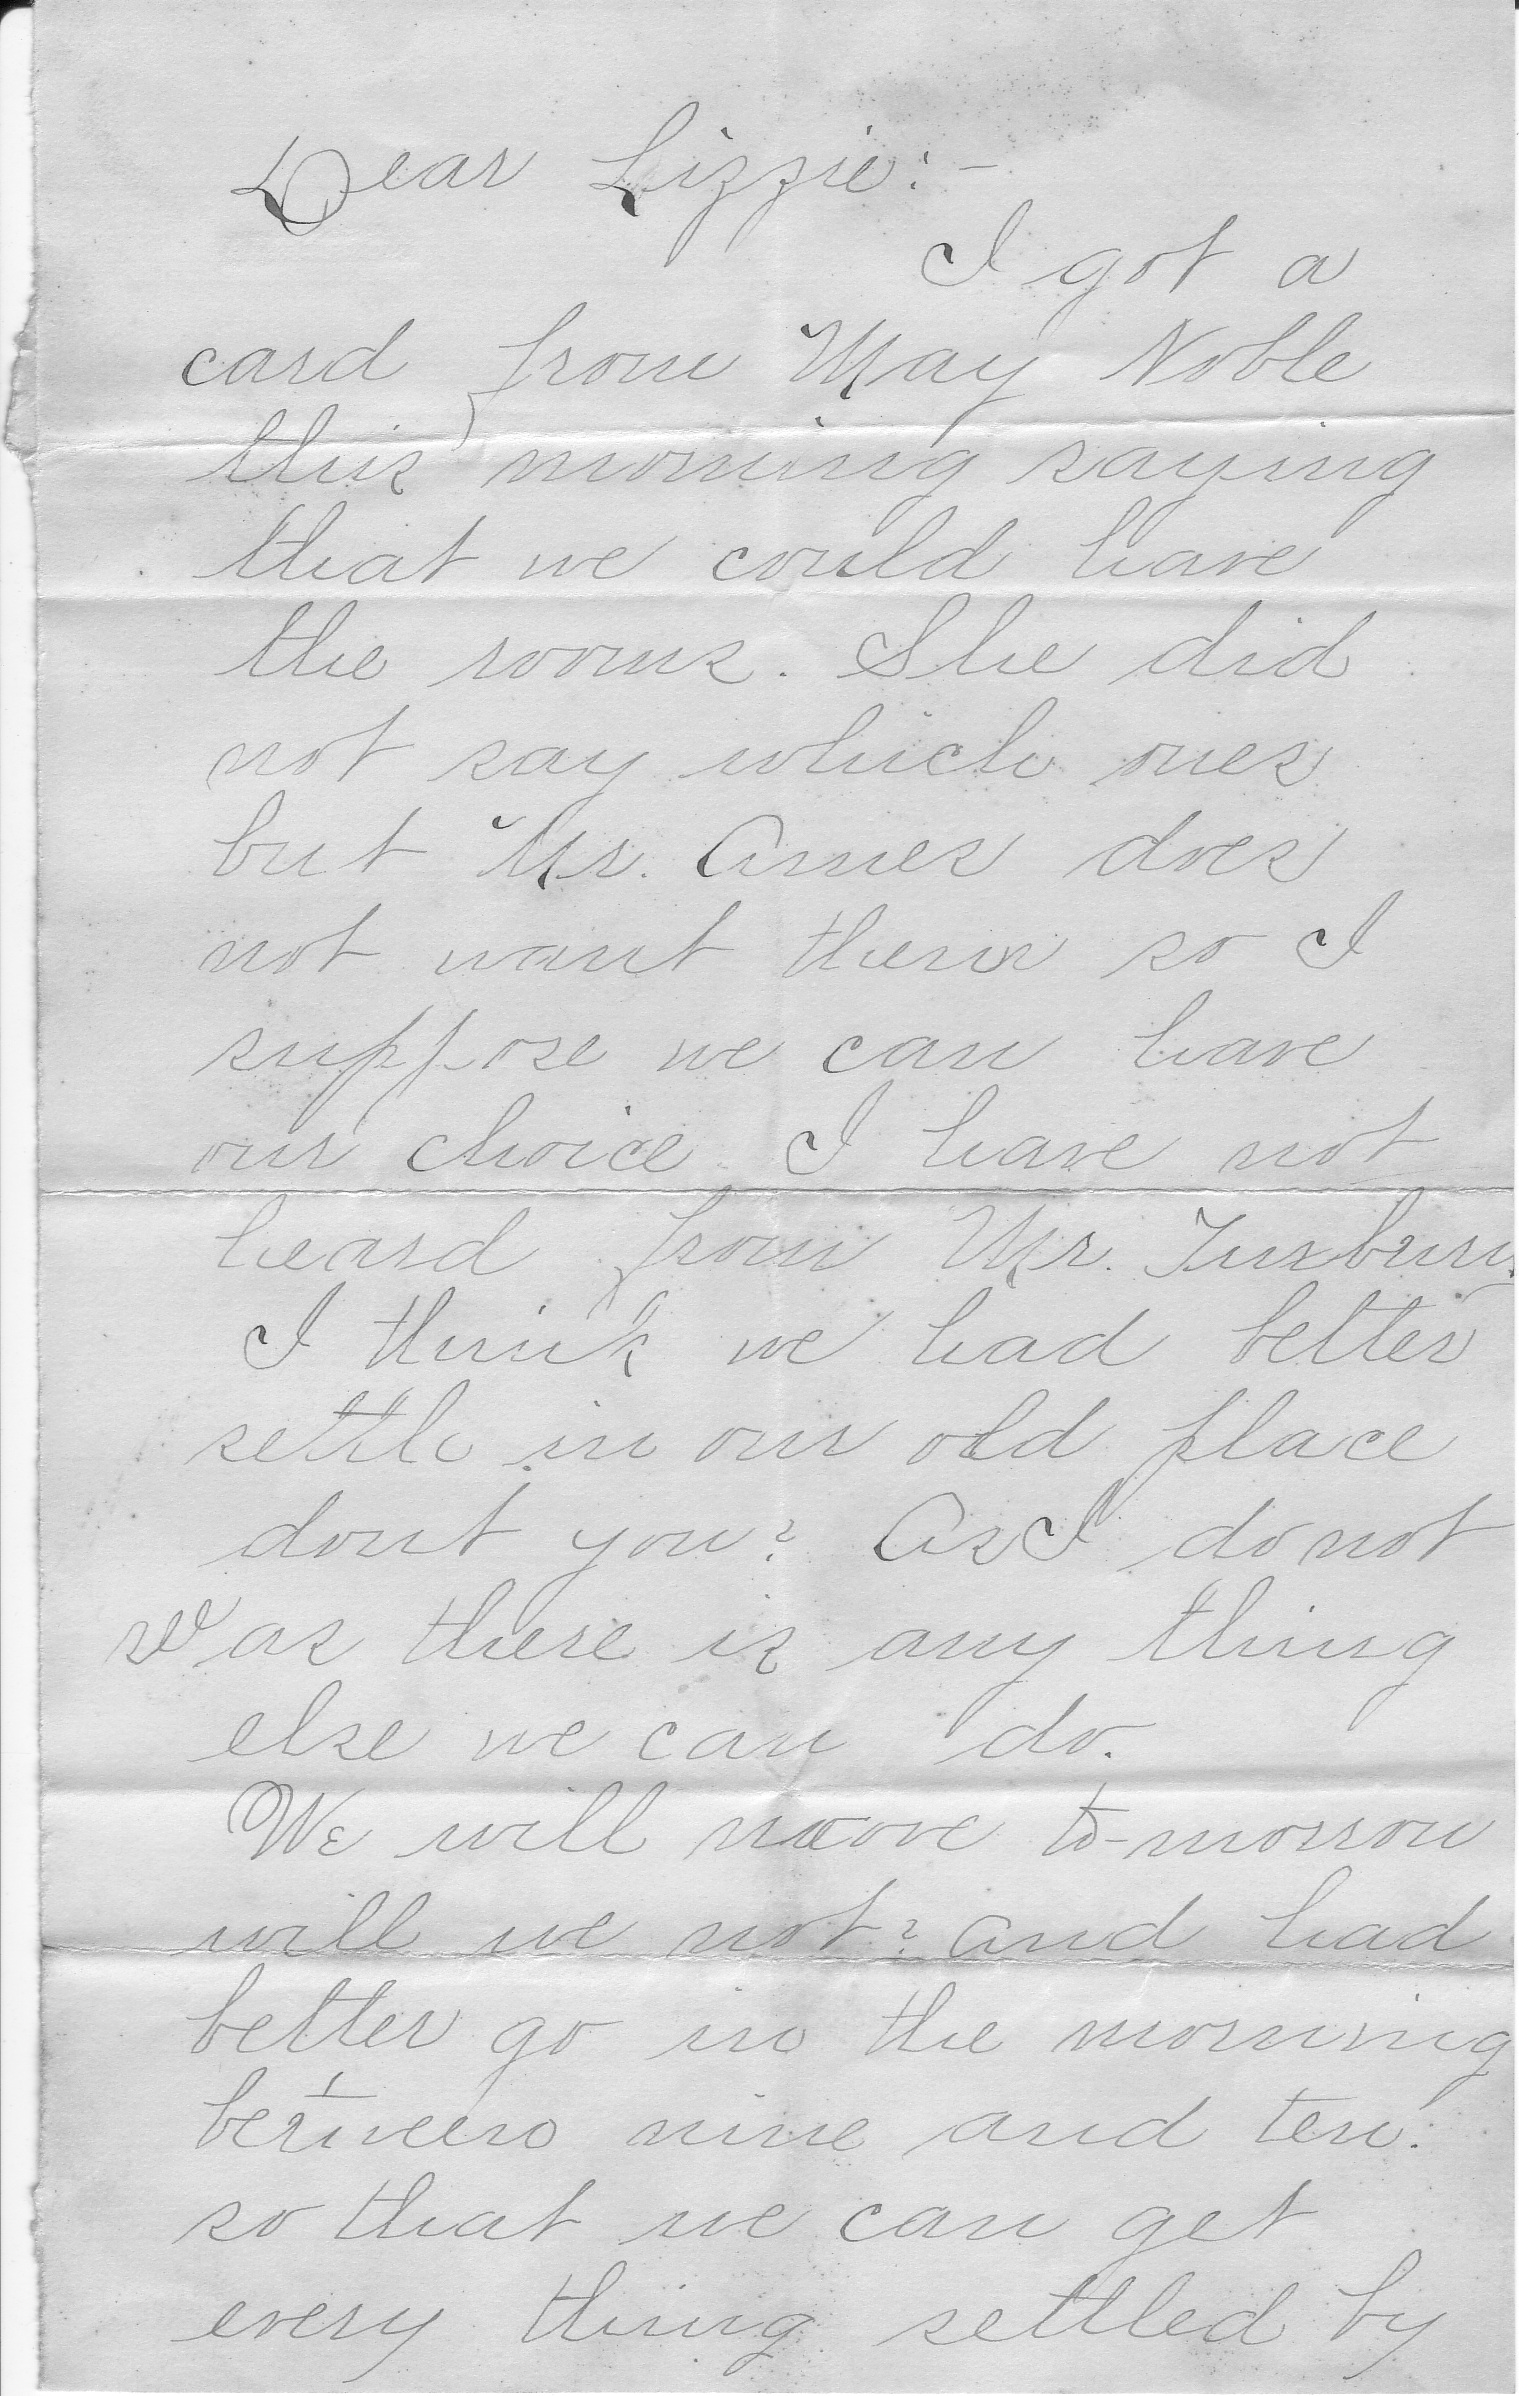 Dear Lizzie:-
I got a
card from May Noble
this morning saying
that we could have
the rooms. She did
not say which ones
but Mr. Ames does
not want them so I
suppose we can have
our choice. I have not
heard from Mr. Tuxbury.
I think we had better
settle in our old place
dont you? As I do not
see as there is any thing
else we can do.
We will move to-morrow
will we not? and had
better go in the morning
between nine and ten.
so that we can get
every thing settled by